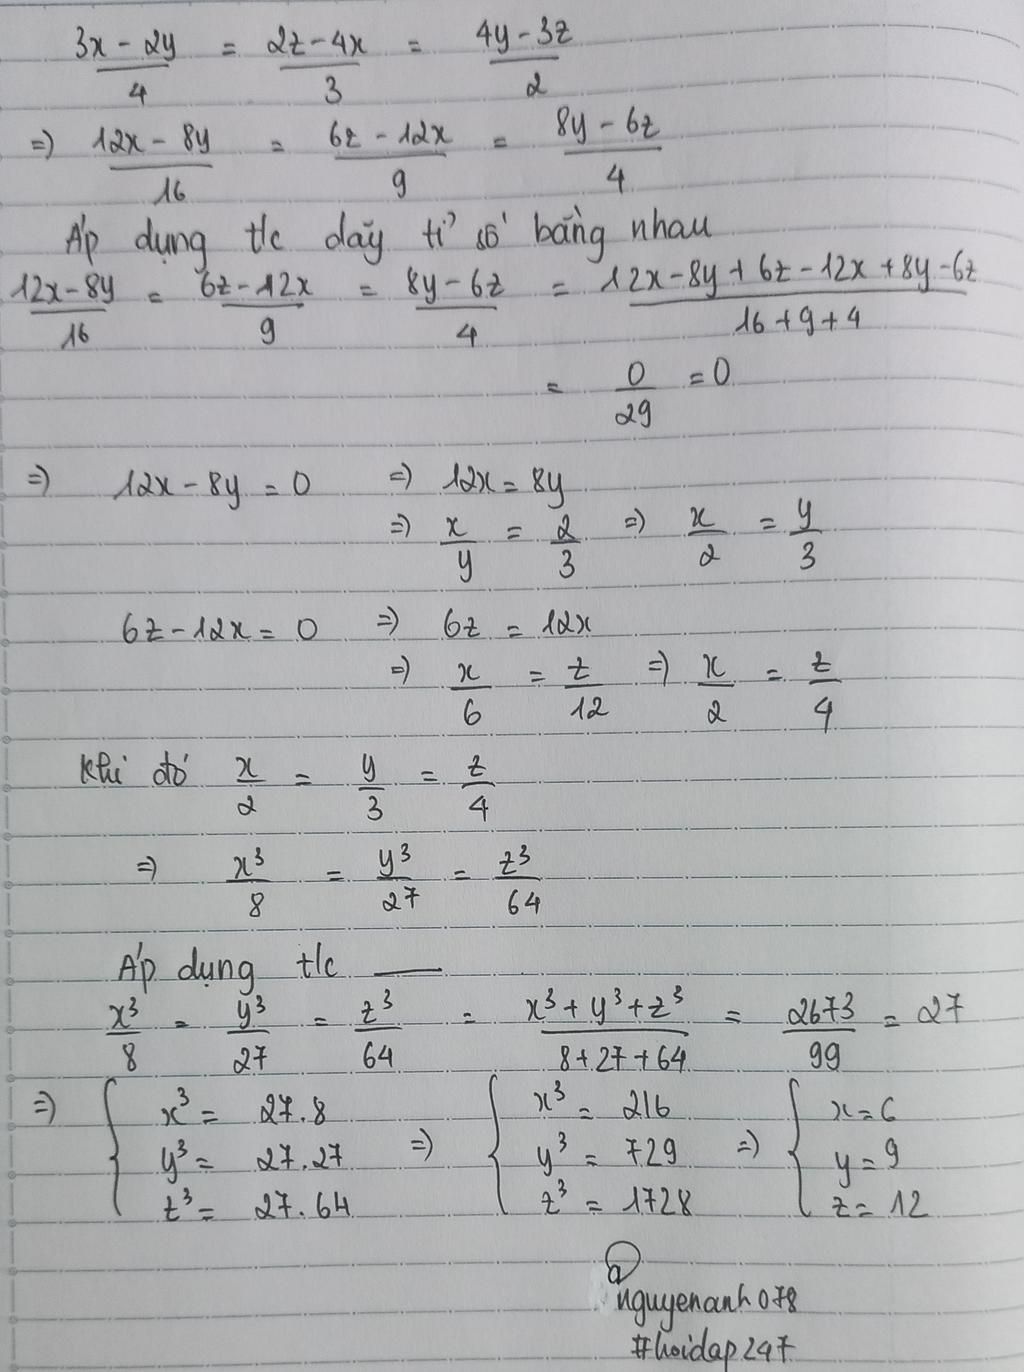 3x - 2y / 4 = 2z - 4x / 3 = 4y - 3z / 2
=) 12x - 8y / 16 = 6z - 12x / 9 = 8y - 6z / 4
Áp dụng t/c dãy tỉ số bằng nhau
12x - 8y / 16 = 6z - 12x / 9 = 8y - 6z / 4 = 12x - 8y + 6z - 12x + 8y - 6z / 16 + 9 + 4
= 0 / 29 = 0
=) 12x - 8y = 0 =) 12x = 8y
=) x / y = 2 / 3 =) x / 2 = y / 3
6z - 12x = 0 =) 6z = 12x
=) x / 6 = z / 12 =) x / 2 = z / 4
Khi đó x / 2 = y / 3 = z / 4
=) x³ / 8 = y³ / 27 = z³ / 64
Áp dụng t/c —
x³ / 8 = y³ / 27 = z³ / 64 = x³ + y³ + z³ / 8 + 27 + 64 = 2673 / 99 = 27
=) { x³ = 27.8 { x³ = 216 { x = 6
y³ = 27.27 =) y³ = 729 =) y = 9
z³ = 27.64 z³ = 1728 z = 12
@
nguyenanh078
#hoidap247